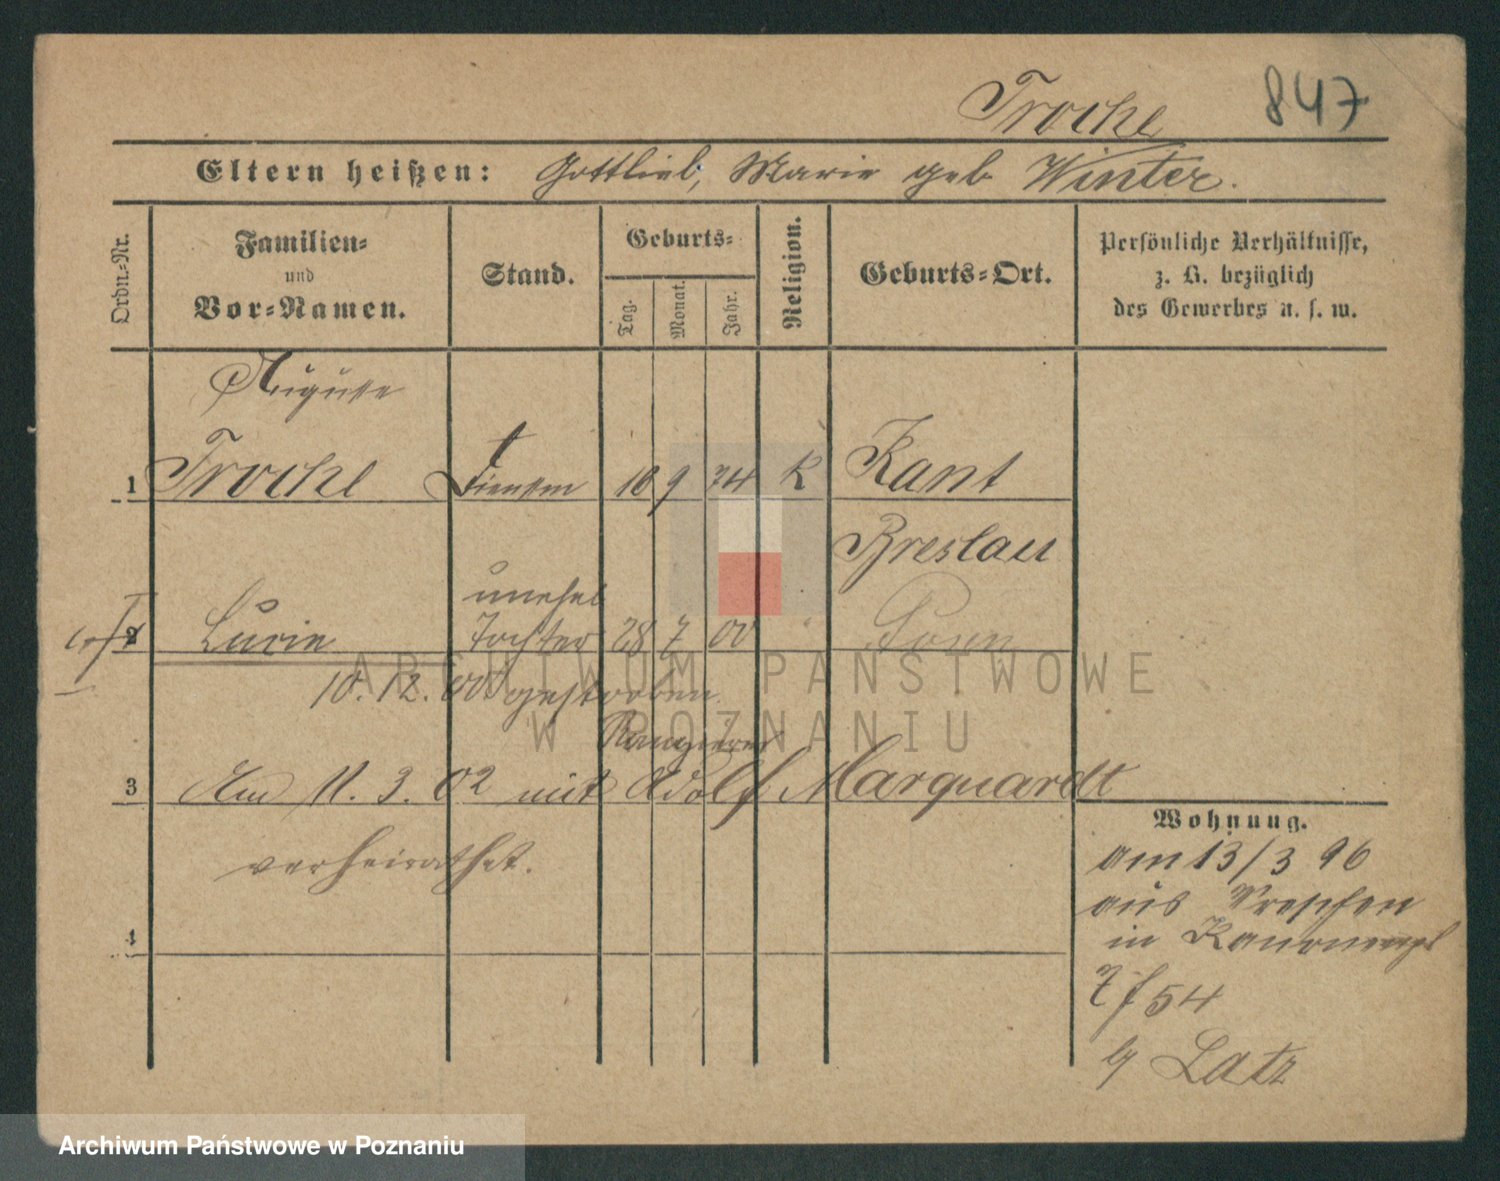 Troche 847
Eltern heißen: Gottlieb, Marie geb Winter.
Ordn.-Nr.
Familien-
und
Vor-Namen.
Stand.
Geburts-
Tag.
Monat.
Jahr.
Religion.
Geburts-Ort.
Persönliche Verhältnisse,
z. B. bezüglich
des Gewerbes u. s. w.
Auguste
1 Troche 9 74 K Kant
Breslau
unehel
2 Tochter 28 7 00 " Posen
10.12.00 gestorben
Rangierer
3 Am 11.3.02 mit Adolf Marquardt
verheirathet.
4
Wohnung.
am 13/3 96
aus Wreschen
in
54
Latz
ARCHIWUM PAŃSTWOWE
W POZNANIU
Archiwum Państwowe w Poznaniu